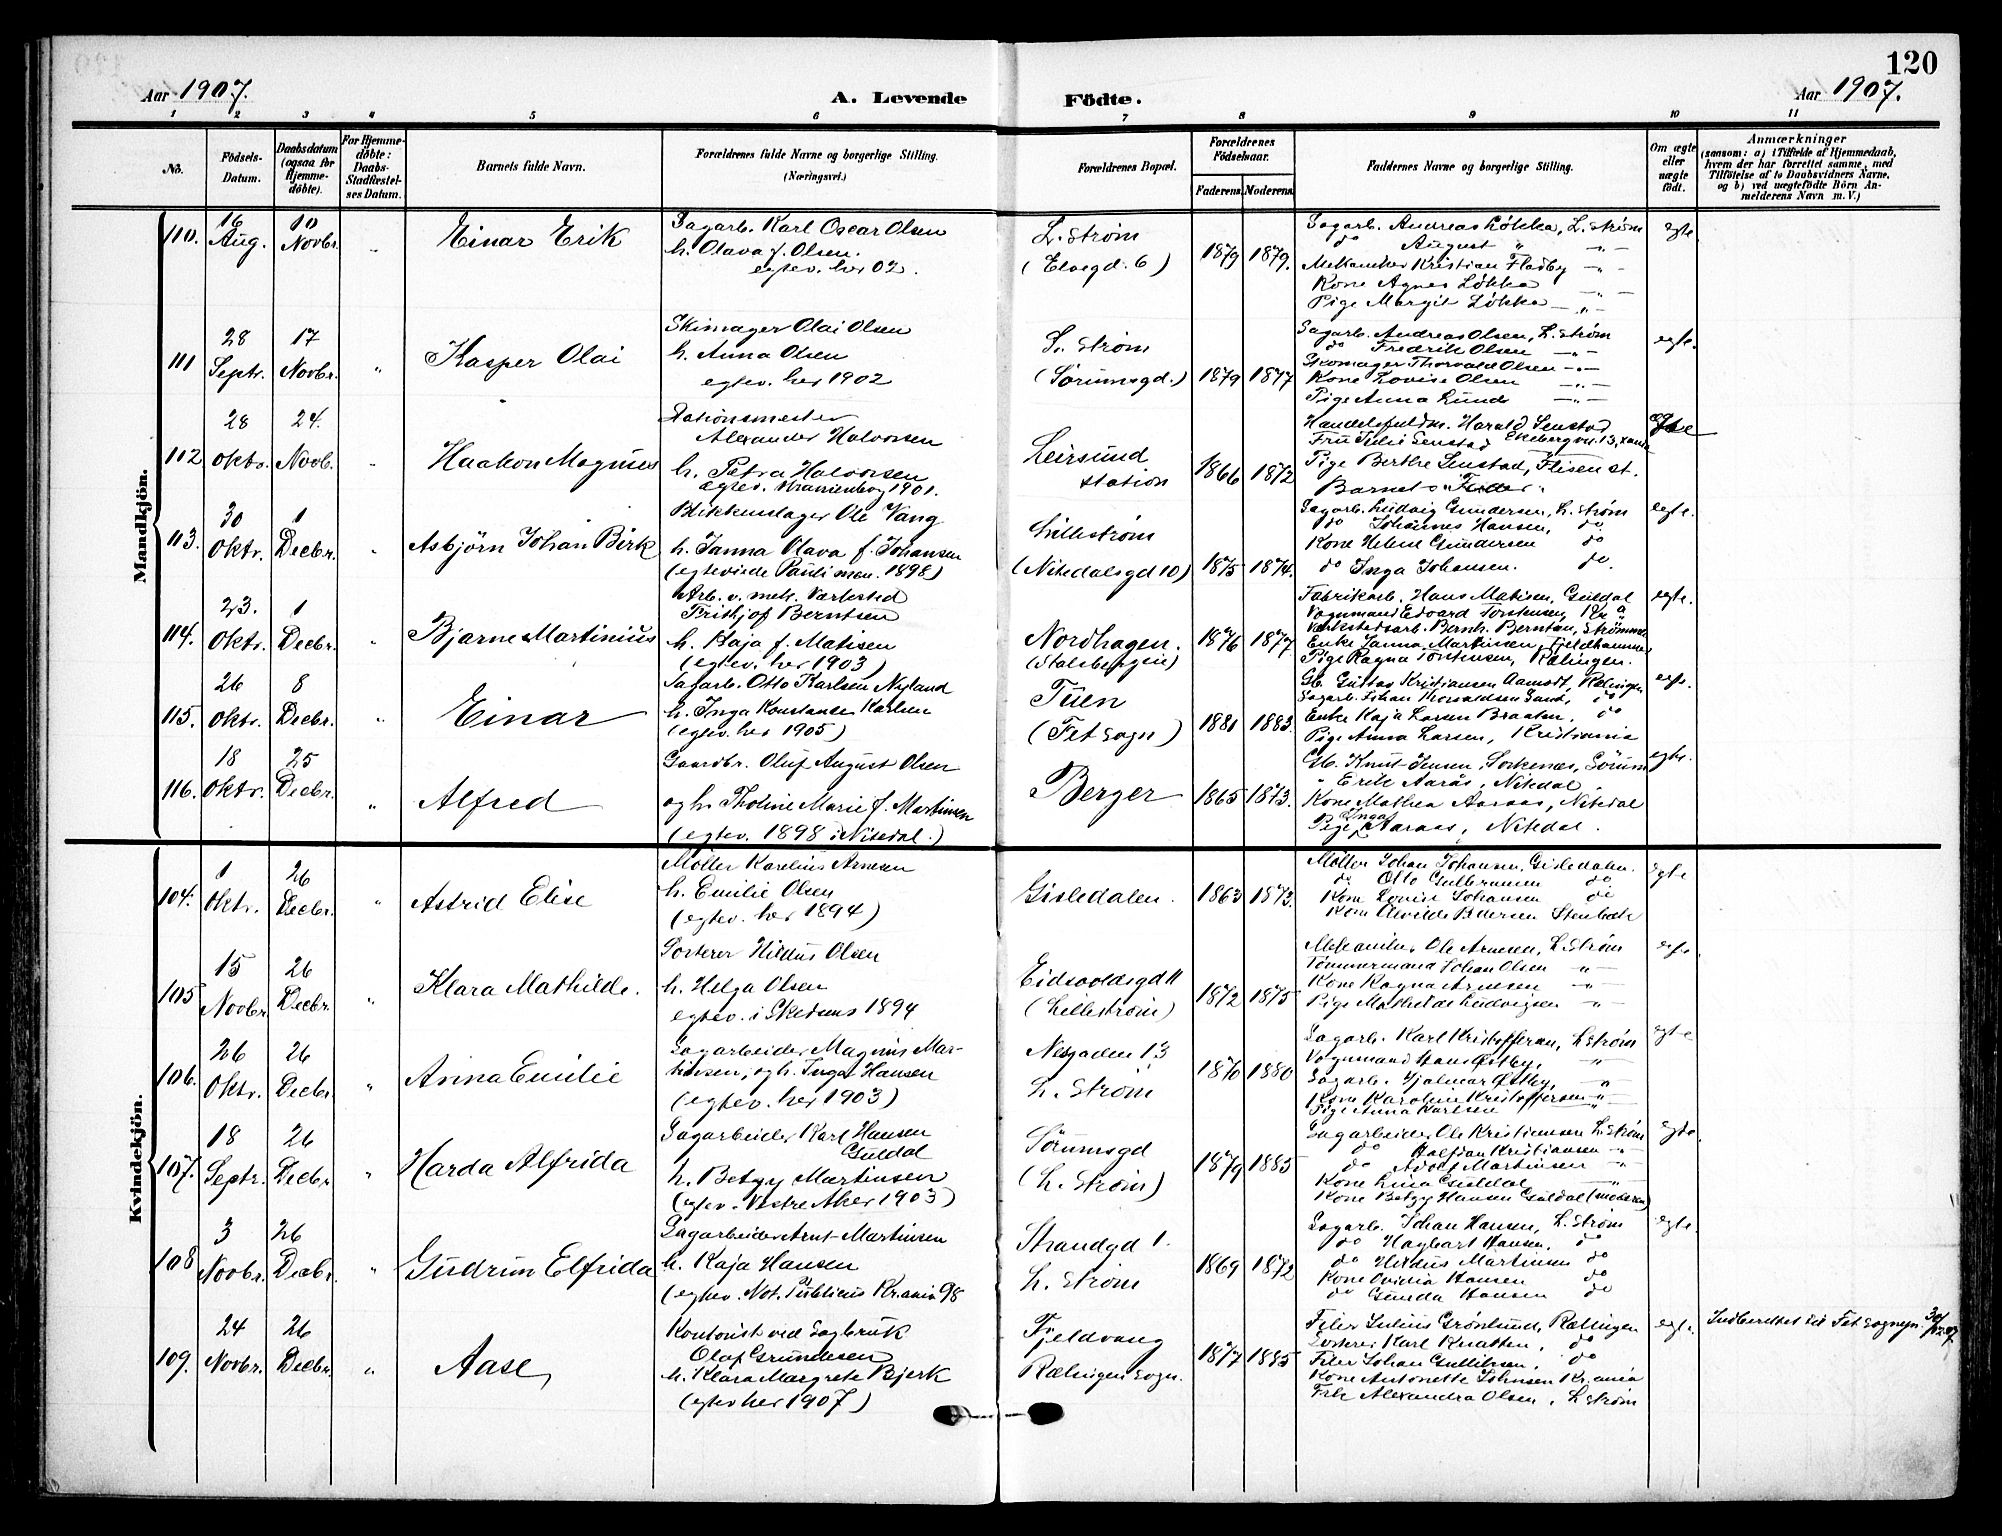 120
Aar 1907.
A. Levende Födte.
Aar 1907.
1 2 3 4 5 6 7 8 9 10 11
No.
Födsels-Datum.
Daabsdatum (ogsaa for Hjemme-döbte).
For Hjemme-döbte: Daabs-Stadfæstel-ses Datum.
Barnets fulde Navn.
Forældrenes fulde Navne og borgerlige Stilling.
(Næringsvei.)
Forældrenes Bopæl.
Forældrenes Födselsaar.
Faderens. Moderens.
Faddernes Navne og borgerlige Stilling.
Om ægte eller uægte födt.
Anmærkninger
(saasom: a) i Tilfælde af Hjemmedaab, hvem der har forrettet samme, med Tilföielse af to Daabsvidners Navne, og b) ved uægtefödte Börn An-melderens Navn m. V.)
Mandkjön.
110. 16 Aug. 10 Novbr. " Einar Erik
Sagarb. Karl Oscar Olsen
h. Olava f. Olsen.
egtev. her 02.
L. Strøm
(Elvegd. 6)
1879 1879.
Sagarb. Andreas Løkka, L. Strøm
do August " — " —
Mekaniker Kristian Fladby — " —
Kone Agnes Løkka — " —
Pige Margit Løkka — " —
egte.
111 28 Septr. 17 Novbr. " Kasper Olai
Skimager Olai Olsen
h. Anna Olsen
egtev. her 1902
L. Strøm
(Sørumsgd.)
1879 1877
Sagarb. Andreas Olsen, L. Strøm
do Fredrik Olsen — " —
Skomager Thorvald Olsen — " —
Kone Lovise Olsen — " —
Pige Anna Lund — " —
egte.
112 28 oktr. 24. Novb. " Haakon Magnus
Stationsmester
Alexander Halvorsen
h. Petra Halvorsen
egtev. Uranienborg 1901.
Leirsund
station
1866 1872
Handelsfuldm. Harald Senstad
Fru Julie Senstad Ekebergvn. 13, Xania
Pige Berthe Senstad, Flisen st.
Barnets Fader
egte
113. 30 Oktr. 1 Decbr. " Asbjörn Johan Birk
Blikkenslager Ole Vang
h. Janna Olava f. Johansen
(egteviede Pauli men. 1898)
Lillestrøm
(Nitedalsgd 10)
1875 1874.
Sagarb. Ludvig Gundersen, L. Strøm
do Johannes Hansen, do
Kone Helene Gundersen do
do Inga Johansen. do.
egte.
114. 23. Oktr. 1 Decbr. " Bjarne Martinius
Arb. v. mek. Værksted
Frithjof Berntsen
h. Kaja f. Matisen
(egtev. her 1903)
Nordhagen.
(Stalsbergeie)
1876 1877
Fabrikarb. Hans Matisen, Guldal
Vognmand Edvard Torstensen, Kr. a
Værkstedsarb. Bernh. Berntsen, Strømmen
Enke Janna Martinsen, Fjeldhammer
Pige Ragna Torstensen, Rælingen.
egte.
115. 26 Oktr. 8 Decbr. " Einar
Sagarb. Otto Karlsen Nyland
h. Inga Konstanse Karlsen
(egtev. her 1905)
Tuen
(Fet sogn)
1881 1883.
Gb. Gustav Kristiansen Aamodt, Rælingen
Sagarb. Johan Thorvaldsen Sand, do
Enke Kaja Larsen Braaten, do
Pige Anna Larsen, Kristiania
egte.
116. 18 Oktr. 25 Decbr. " Alfred
Gaardbr. Oluf August Olsen
og h. Tholine Marie f. Martinsen
(egtev. 1898 i Nitedal.)
Berger
1865 1873.
Gb. Knut Jensen, Sorkenæs, Sörum
" Erik Aarås, Nitedal.
Kone Mathea Aaraas, Nitedal
Pige Inga Aaraas, Nitedal.
egte.
Kvindekjön.
104. 1 Oktr. 26 Decbr. " Astrid Elise
Møller Karelius Arnesen
h. Emilie Olsen
(egtev. her 1894)
Gisledalen.
1863 1873.
Møller Johan Johansen, Gisledalen.
do Otto Gulbransen do
Kone Lovise Johansen do
Kone Alvilde Pedersen Stenbæk
egte
105 15 Novbr. 26 Decbr. " Klara Mathilde.
Sorterer Hildus Olsen
h. Helga Olsen
egtev. i Skedsmo 1894
Eidsvoldsgd 11
(Lillestrøm)
1872 1875
Mekaniker Ole Arnesen, L. Strøm
Tømmermand Johan Olsen " —
Kone Ragna Arnesen — " —
Pige Mathilde Ludvigsen — " —
egte.
106. 26 Oktr. 26 Decbr. " Anna Emilie
Sagarbeider Magnus Mar-
tinsen, og h. Inga Hansen
(egtev. her 1903)
Nesgaden 13
L. Strøm
1870 1880
Sagarb. Karl Kristoffersen, L. Strøm
Vognmand Hans Østby, — " —
Sagarb. Hjalmar Østby, — " —
Kone Karoline Kristoffersen — " —
Pige Anna Karlsen "
egte
107. 18 Septr. 26 Decbr. " Harda Alfrida
Sagarbeider Karl Hansen
Guldal
h. Betzy Martinsen
(egtev. Vestre Aker 1903)
Sørumsgd
(L. Strøm)
1879 1885
Sagarbeider Ole Kristiansen L. Strøm
do Halfdan Kristiansen — " —
do Adolf Martinsen — " —
Kone Lina Guldal — " —
Kone Betzy Hansen Guldal (moderen)
egte.
108 3 Novbr. 26 Decbr. " Gudrun Elfrida
Sagarbeider Arnt Martinsen
h. Kaja Hansen
(egtev. Not. Publicus Kr.ania 98
Strandgd 1.
L. Strøm
1869 1872
Sagarb. Johan Hansen, L. Strøm
do Hagbart Hansen, do
do Hildus Martinsen do
Kone Ovidia Hansen do
do Gunda Hansen do
egte.
109. 24 Novbr. 26 Decbr. " Aase,
Kontorist ved Sagbruk
Olaf Grundesen
h. Klara Margrete Bjerk
(egtev her 1907)
Fjeldvang
Rælingen sogn.
1877 1885
Filer Julius Grønlund, Rælingen
Sorterer Karl Knatten, do
Filer Johan Gullibsen, do
Kone Antonette Johnsen Kr.ania
Frk Alexandra Olsen, L. Strøm
egte.
Indberettet til Fet sognepr. 30/12 07.